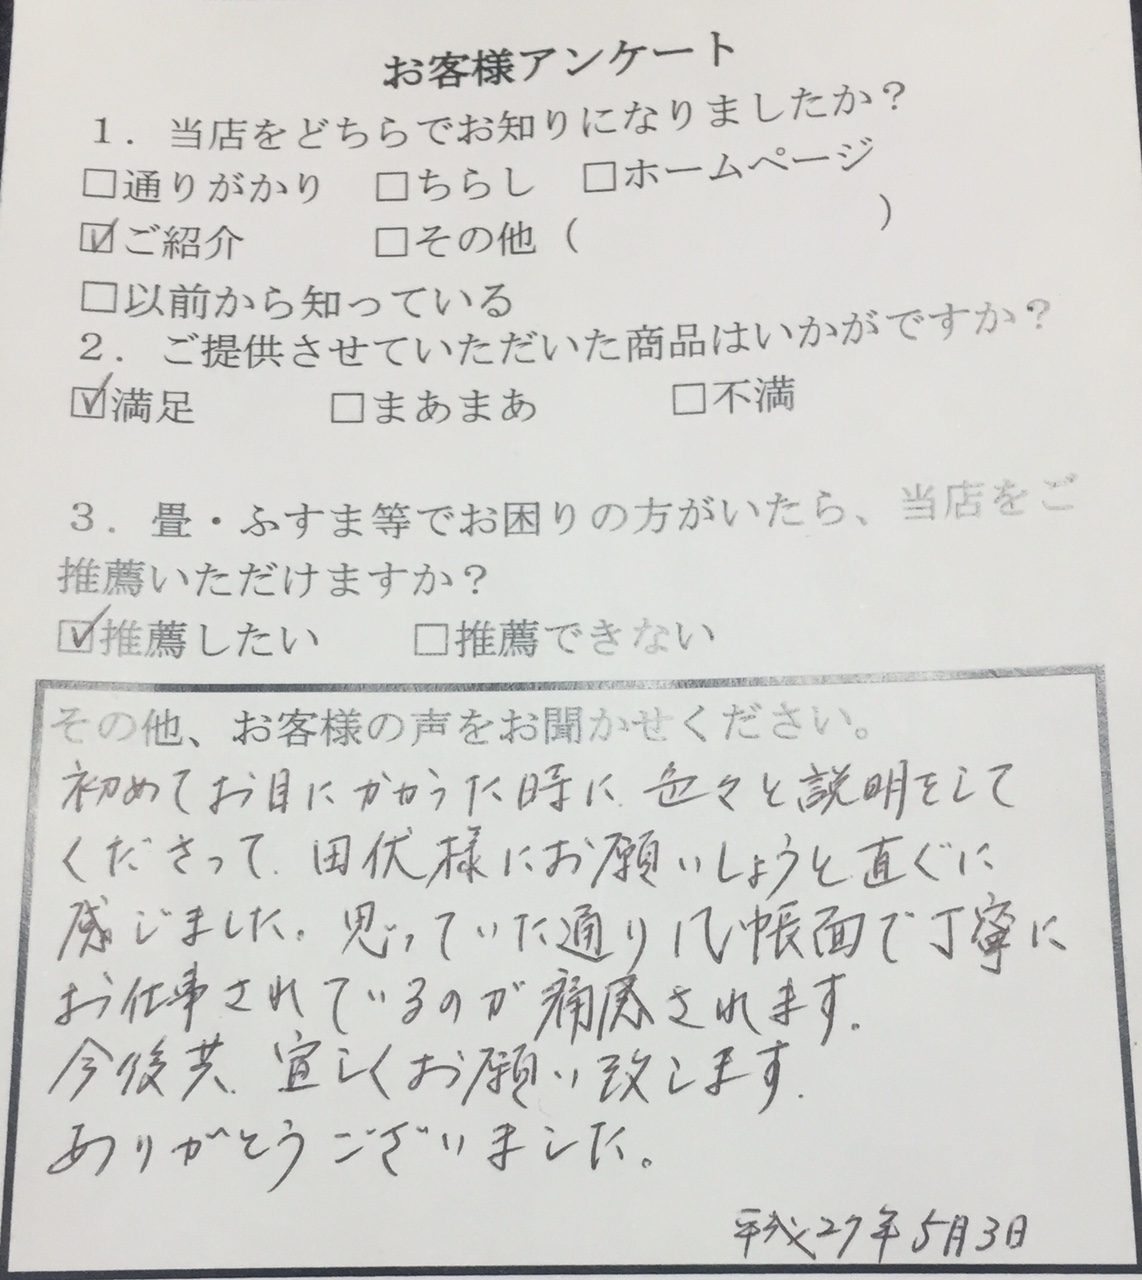 お客様アンケート
１．当店をどちらでお知りになりましたか？
□通りがかり　□ちらし　□ホームページ
☑ご紹介　□その他（　　　）
□以前から知っている
２．ご提供させていただいた商品はいかがですか？
☑満足　□まあまあ　□不満
３．畳・ふすま等でお困りの方がいたら、当店をご
推薦いただけますか？
☑推薦したい　□推薦できない
その他、お客様の声をお聞かせください。
初めてお目にかかった時に、色々と説明をして
くださって、田伏様にお願いしようと直ぐに
感じました。思っていた通り几帳面で丁寧に
お仕事されているのが痛感されます。
今後共、宜しくお願い致します。
ありがとうございました。
平成27年5月3日